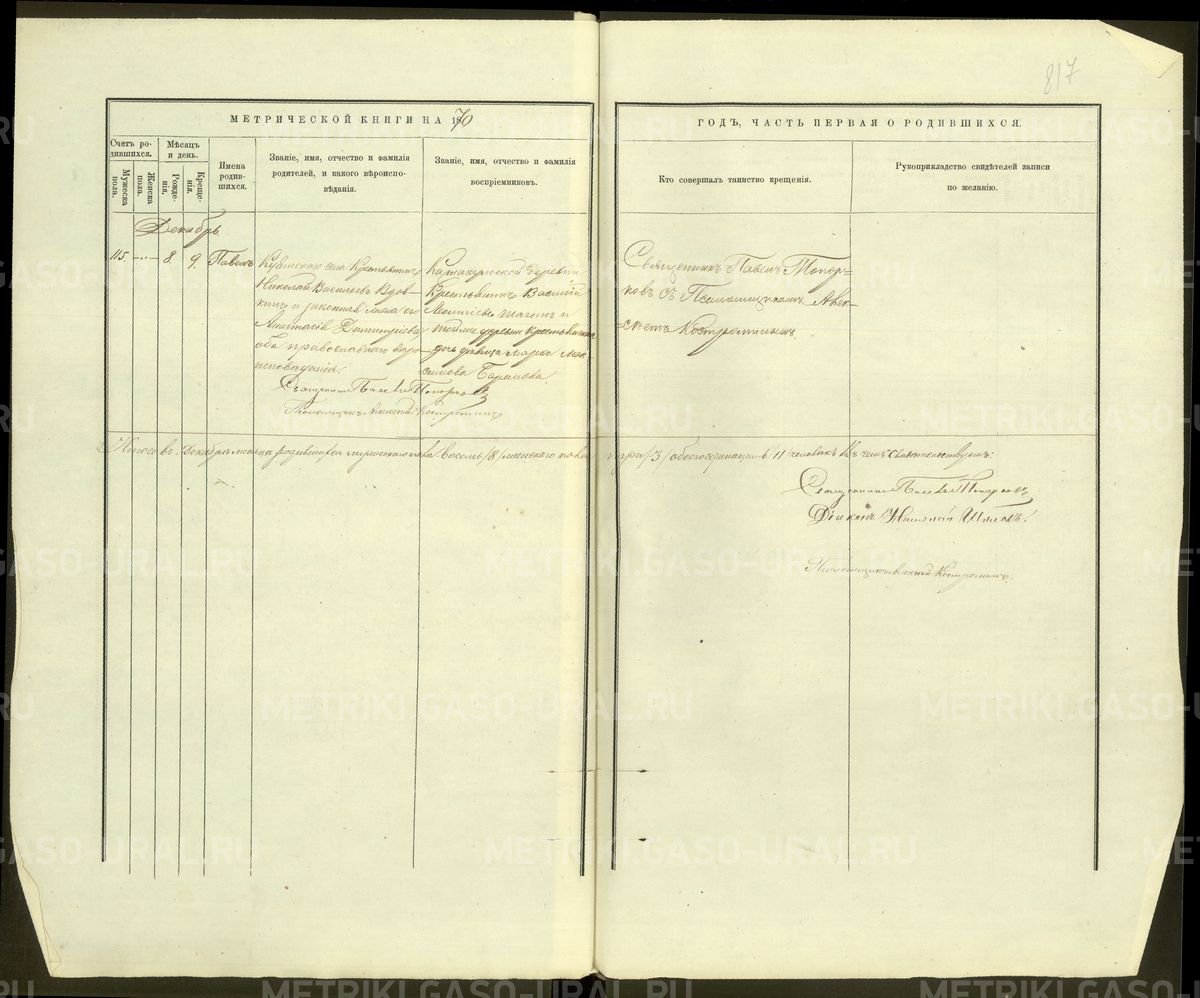 817
МЕТРИЧЕСКОЙ КНИГИ НА 1870
ГОДЪ, ЧАСТЬ ПЕРВАЯ О РОДИВШИХСЯ.
Счетъ ро-
дившихся.
Мужеска
пола.
Женска
пола.
Мѣсяцъ
и день.
Рожде-
нія.
Креще-
нія.
Имена
родив-
шихся.
Званіе, имя, отчество и фамилія
родителей, и какого вѣроиспо-
вѣданія.
Званіе, имя, отчество и фамилія
воспріемниковъ.
Кто совершалъ таинство крещенія.
Рукоприкладство свидѣтелей записи
по желанію.
Декабрь
115 8. 9. Павелъ
села Крестьянинъ
Николай Васильевъ Вдов-
кинъ и законная жена его
Анастасія Димитріева,
оба православнаго вѣро-
исповѣданія.
Священникъ Павелъ Топорковъ
Псаломщикъ Алексѣй Костроминъ
деревни
Крестьянинъ Василій
и
тойже деревни крестьянская
дочь девица Марѳа Мак-
симова
Священникъ Павелъ Топор-
ковъ съ Псаломщикомъ Алек-
сѣемъ Костроминымъ
Итого въ Декабрѣ мѣсяцѣ родившихся мужескаго пола восемь /8/ женскаго пола три /3/ обоего одинадцать /11/ человѣкъ Въ чемъ Свидѣтельствуемъ:
Священникъ Павелъ Топорковъ
Діаконъ Николай
Псаломщикъ Алексѣй Костроминъ.
METRIKI.GASO-URAL.RU